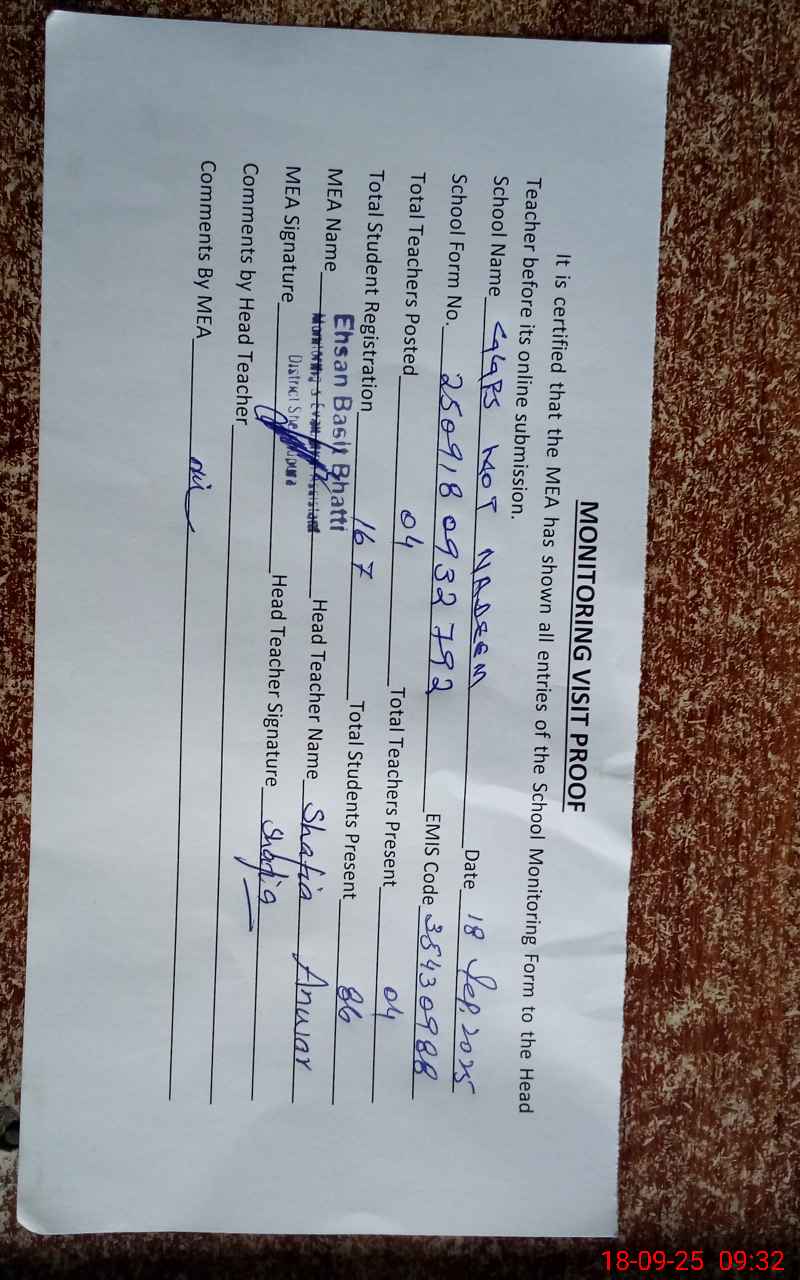 MONITORING VISIT PROOF
It is certified that the MEA has shown all entries of the School Monitoring Form to the Head
Teacher before its online submission.
School Name GGPS KOT NADEEM Date 18 Sep, 2025
School Form No. 2509180932792 EMIS Code 35430988
Total Teachers Posted 04 Total Teachers Present 04
Total Student Registration 167 Total Students Present 86
MEA Name Ehsan Basit Bhatti Head Teacher Name Shafia Anwar
Monitoring & Evaluation Assistant
District Sheikhupura
MEA Signature Head Teacher Signature Shafia
Comments by Head Teacher
Comments By MEA nil
18-09-25 09:32